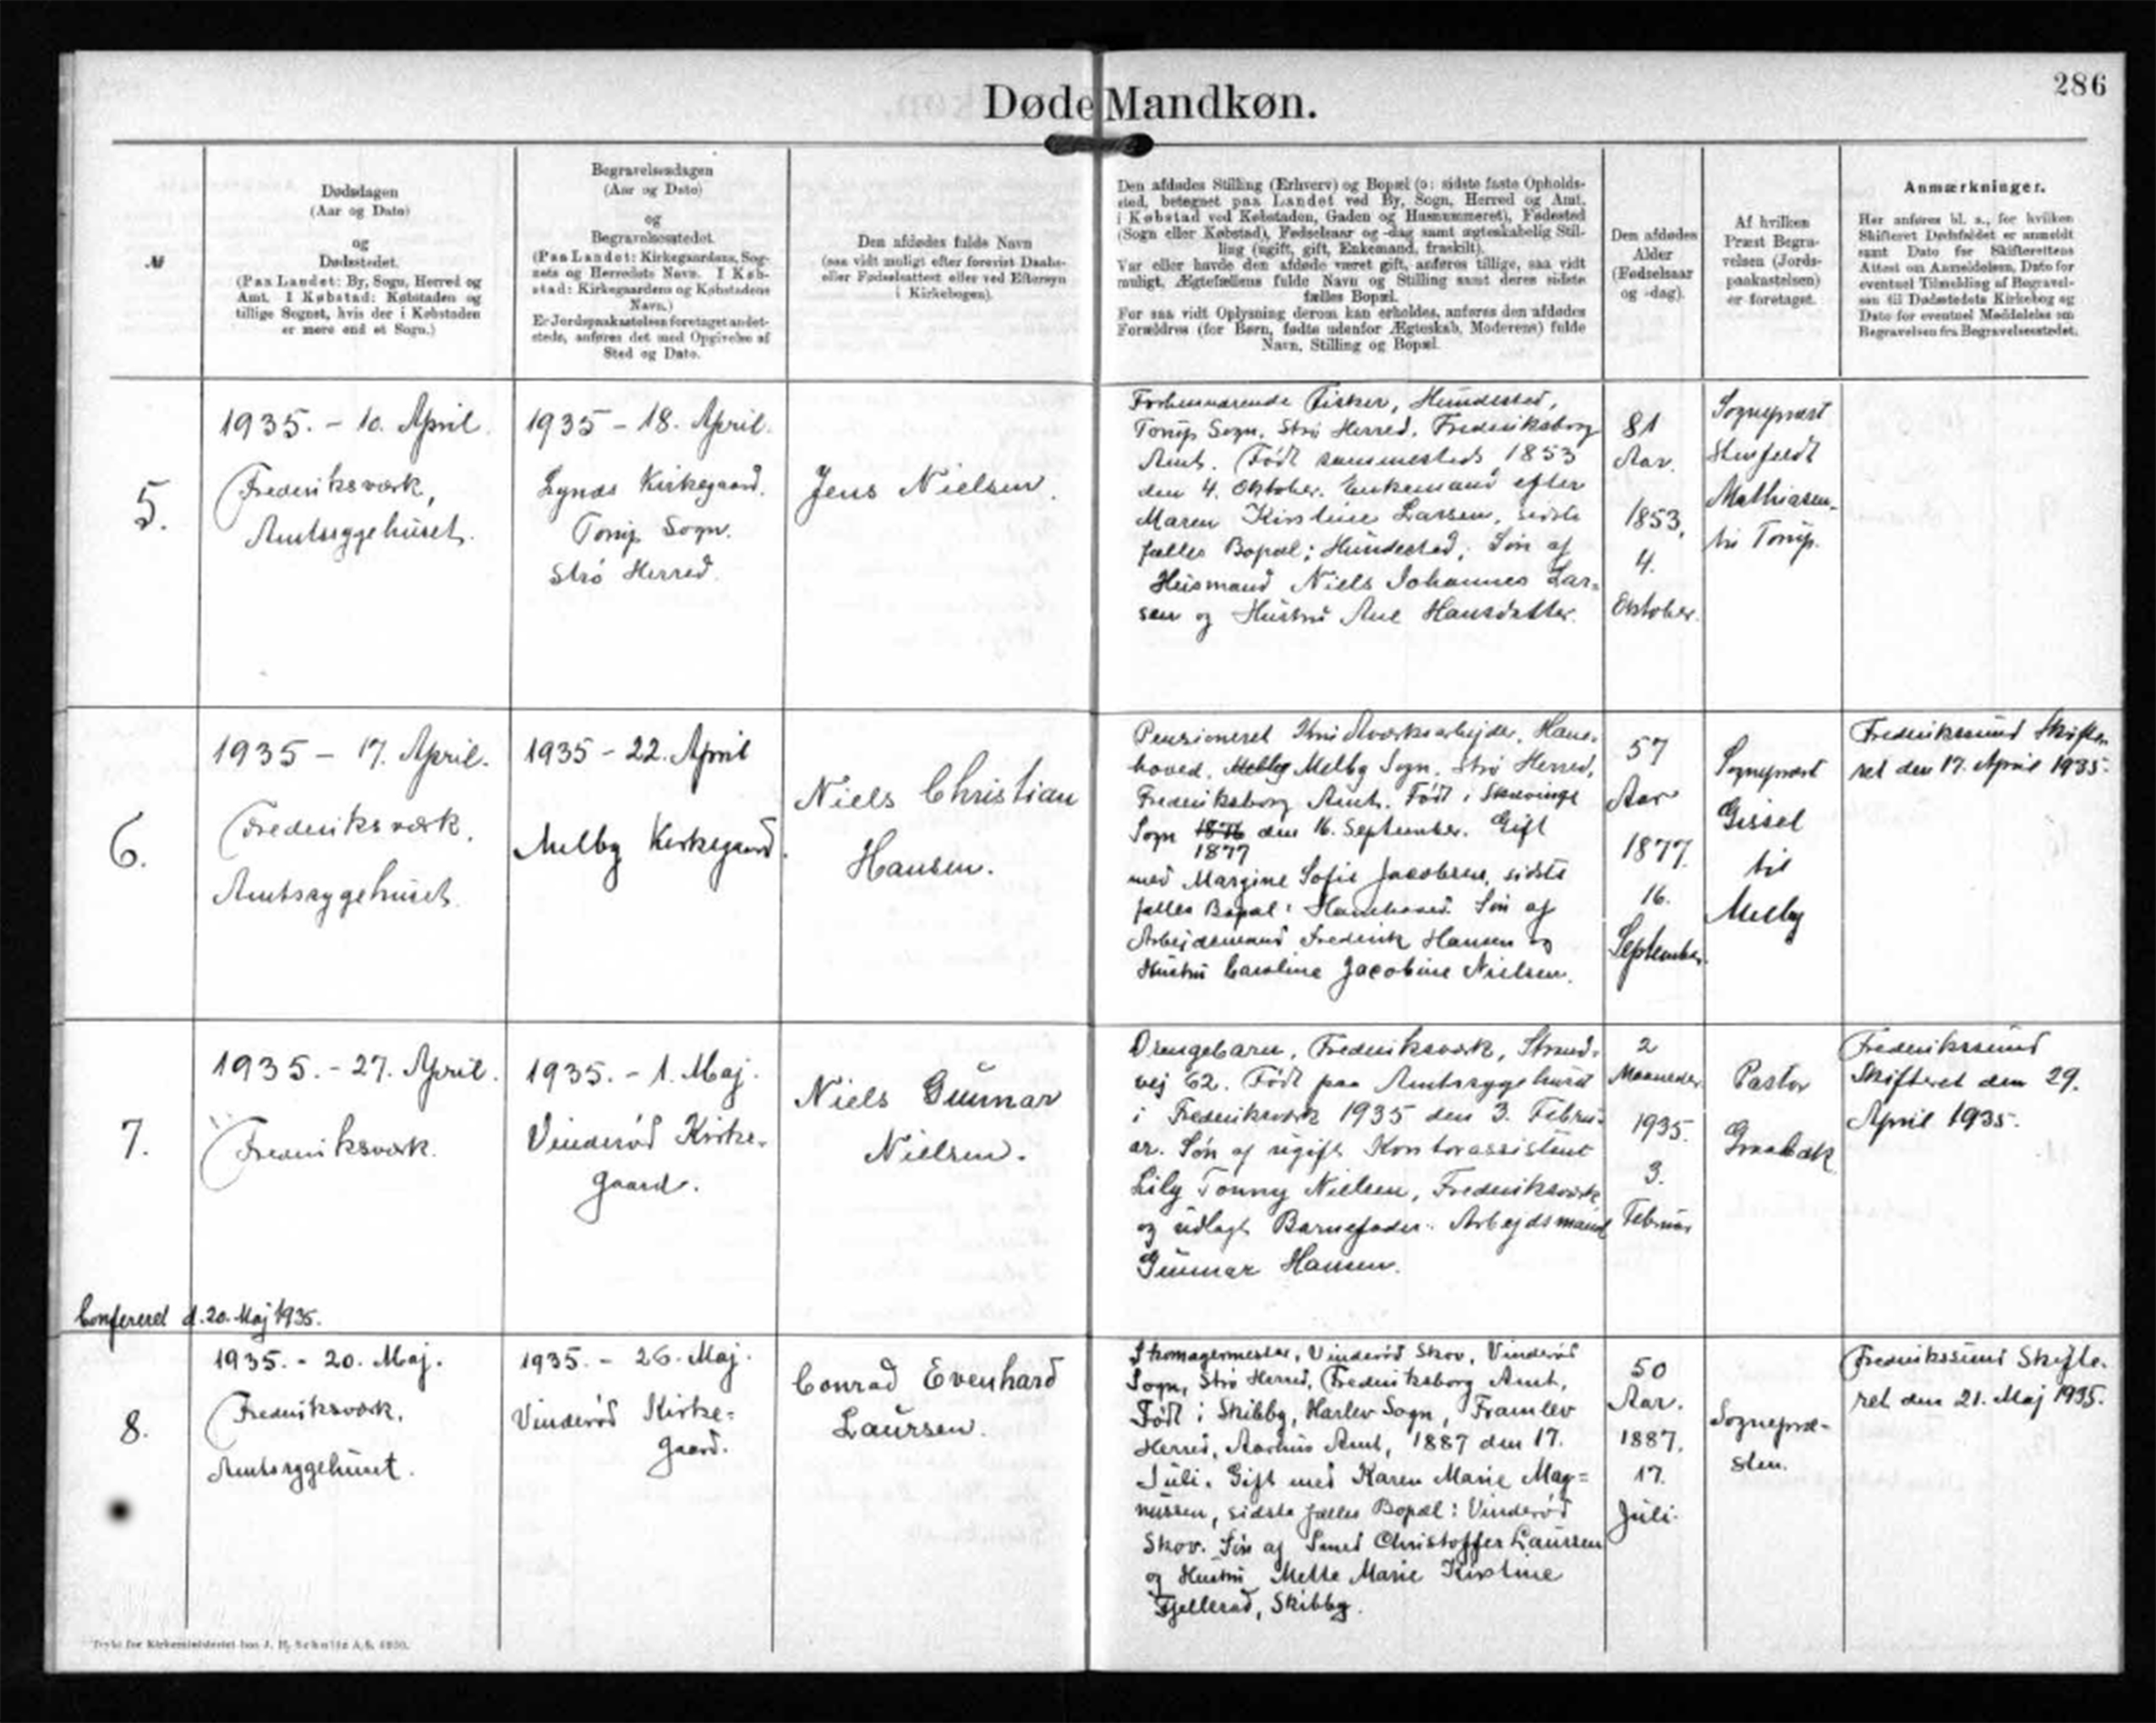 286
Døde Mandkøn.
№
Dødsdagen
(Aar og Dato)
og
Dødsstedet.
(Paa Landet: By, Sogn, Herred og
Amt. I Købstad: Købstaden og
tillige Sognet, hvis der i Købstaden
er mere end et Sogn.)
Begravelsesdagen
(Aar og Dato)
og
Begravelsesstedet.
(Paa Landet: Kirkegaardens, Sog-
nets og Herredets Navn. I Køb-
stad: Kirkegaardens og Købstadens
Navn.)
Er Jordspaakastelsen foretaget andet-
steds, anføres det med Opgivelse af
Sted og Dato.
Den afdødes fulde Navn
(saa vidt muligt efter forevist Daabs-
eller Fødselsattest eller ved Eftersyn
i Kirkebogen).
Den afdødes Stilling (Erhverv) og Bopæl (ɔ: sidste faste Opholds-
sted, betegnet paa Landet ved By, Sogn, Herred og Amt,
i Købstad ved Købstaden, Gaden og Husnummeret), Fødested
(Sogn eller Købstad), Fødselsaar og -dag samt ægteskabelig Stil-
ling (ugift, gift, Enkemand, fraskilt).
Var eller havde den afdøde været gift, anføres tillige, saa vidt
muligt, Ægtefællens fulde Navn og Stilling samt deres sidste
fælles Bopæl.
For saa vidt Oplysning derom kan erholdes, anføres den afdødes
Forældres (for Børn, fødte udenfor Ægteskab, Moderens) fulde
Navn, Stilling og Bopæl.
Den afdødes
Alder
(Fødselsaar
og -dag).
Af hvilken
Præst Begra-
velsen (Jords-
paakastelsen)
er foretaget.
Anmærkninger.
Her anføres bl. a., for hvilken
Skifteret Dødsfaldet er anmeldt
samt Dato for Skifterettens
Attest om Anmeldelsen, Dato for
eventuel Tilmelding af Begravel-
sen til Dødsstedets Kirkebog og
Dato for eventuel Meddelelse om
Begravelsen fra Begravelsesstedet.
5.
1935. - 10. April.
Frederiksværk,
Amtssygehuset.
1935 - 18. April.
Lynæs Kirkegaard.
Torup Sogn.
Strø Herred.
Jens Nielsen.
Forhenværende Fisker, Hundested,
Torup Sogn, Strø Herred, Frederiksborg
Amt. Født sammesteds 1853
den 4. Oktober. Enkemand efter
Maren Kirstine Larsen, sidste
fælles Bopæl: Hundested. Søn af
Husmand Niels Johannes Lar-
sen og Hustru Ane Hansdatter.
81
Aar.
1853,
4.
Oktober.
Sognepræst
Mathiasen
til Torup.
6.
1935 - 17. April.
Frederiksværk.
Amtssygehuset.
1935 - 22. April
Melby Kirkegaard.
Niels Christian
Hansen.
Pensioneret Krudtværksarbejder, Hane-
hoved, Melby Melby Sogn, Strø Herred,
Frederiksborg Amt. Født i Skævinge
Sogn 1876 den 16. September. Gift
1877
med Margine Sofie Jacobsen, sidste
fælles Bopæl: Hanehoved. Søn af
Arbejdsmand Frederik Hansen og
Hustru Caroline Jacobine Nielsen.
57
Aar
1877.
16.
September.
Sognepræst
Gissel
til
Melby
Frederikssund Skifte-
ret den 17. April 1935.
7.
1935. - 27. April.
Frederiksværk.
1935. - 1. Maj.
Vinderød Kirke-
gaard.
Niels Gunnar
Nielsen.
Drengebarn, Frederiksværk, Strand-
vej 62. Født paa Amtssygehuset
i Frederiksværk 1935 den 3. Febru-
ar. Søn af ugift Kontorassistent
Lily Tonny Nielsen, Frederiksværk,
og udlagt Barnefader: Arbejdsmand
Gunnar Hansen.
2
Maaneder.
1935.
3.
Februar
Pastor
Graabæk
Frederikssund
Skifteret den 29.
April 1935.
Confereret d. 20. Maj 1935.
8.
1935. - 20. Maj.
Frederiksværk.
Amtssygehuset.
1935. - 26. Maj.
Vinderød Kirke-
gaard.
Conrad Evenhard
Laursen.
Skomagermester, Vinderød Skov, Vinderød
Sogn, Strø Herred, Frederiksborg Amt,
Født i Skibby, Harlev Sogn, Framlev
Herred, Aarhus Amt, 1887 den 17.
Juli. Gift med Karen Marie Mag-
nussen, sidste fælles Bopæl: Vinderød
Skov. Søn af Smed Christoffer Laursen
og Hustru Mette Marie Kirstine
Fjellerad, Skibby.
50
Aar.
1887.
17.
Juli.
Sognepræ-
sten.
Frederikssund Skifte-
ret den 21. Maj 1935.
Trykt for Kirkeministeriet hos J. H. Schultz A/S. 1930.